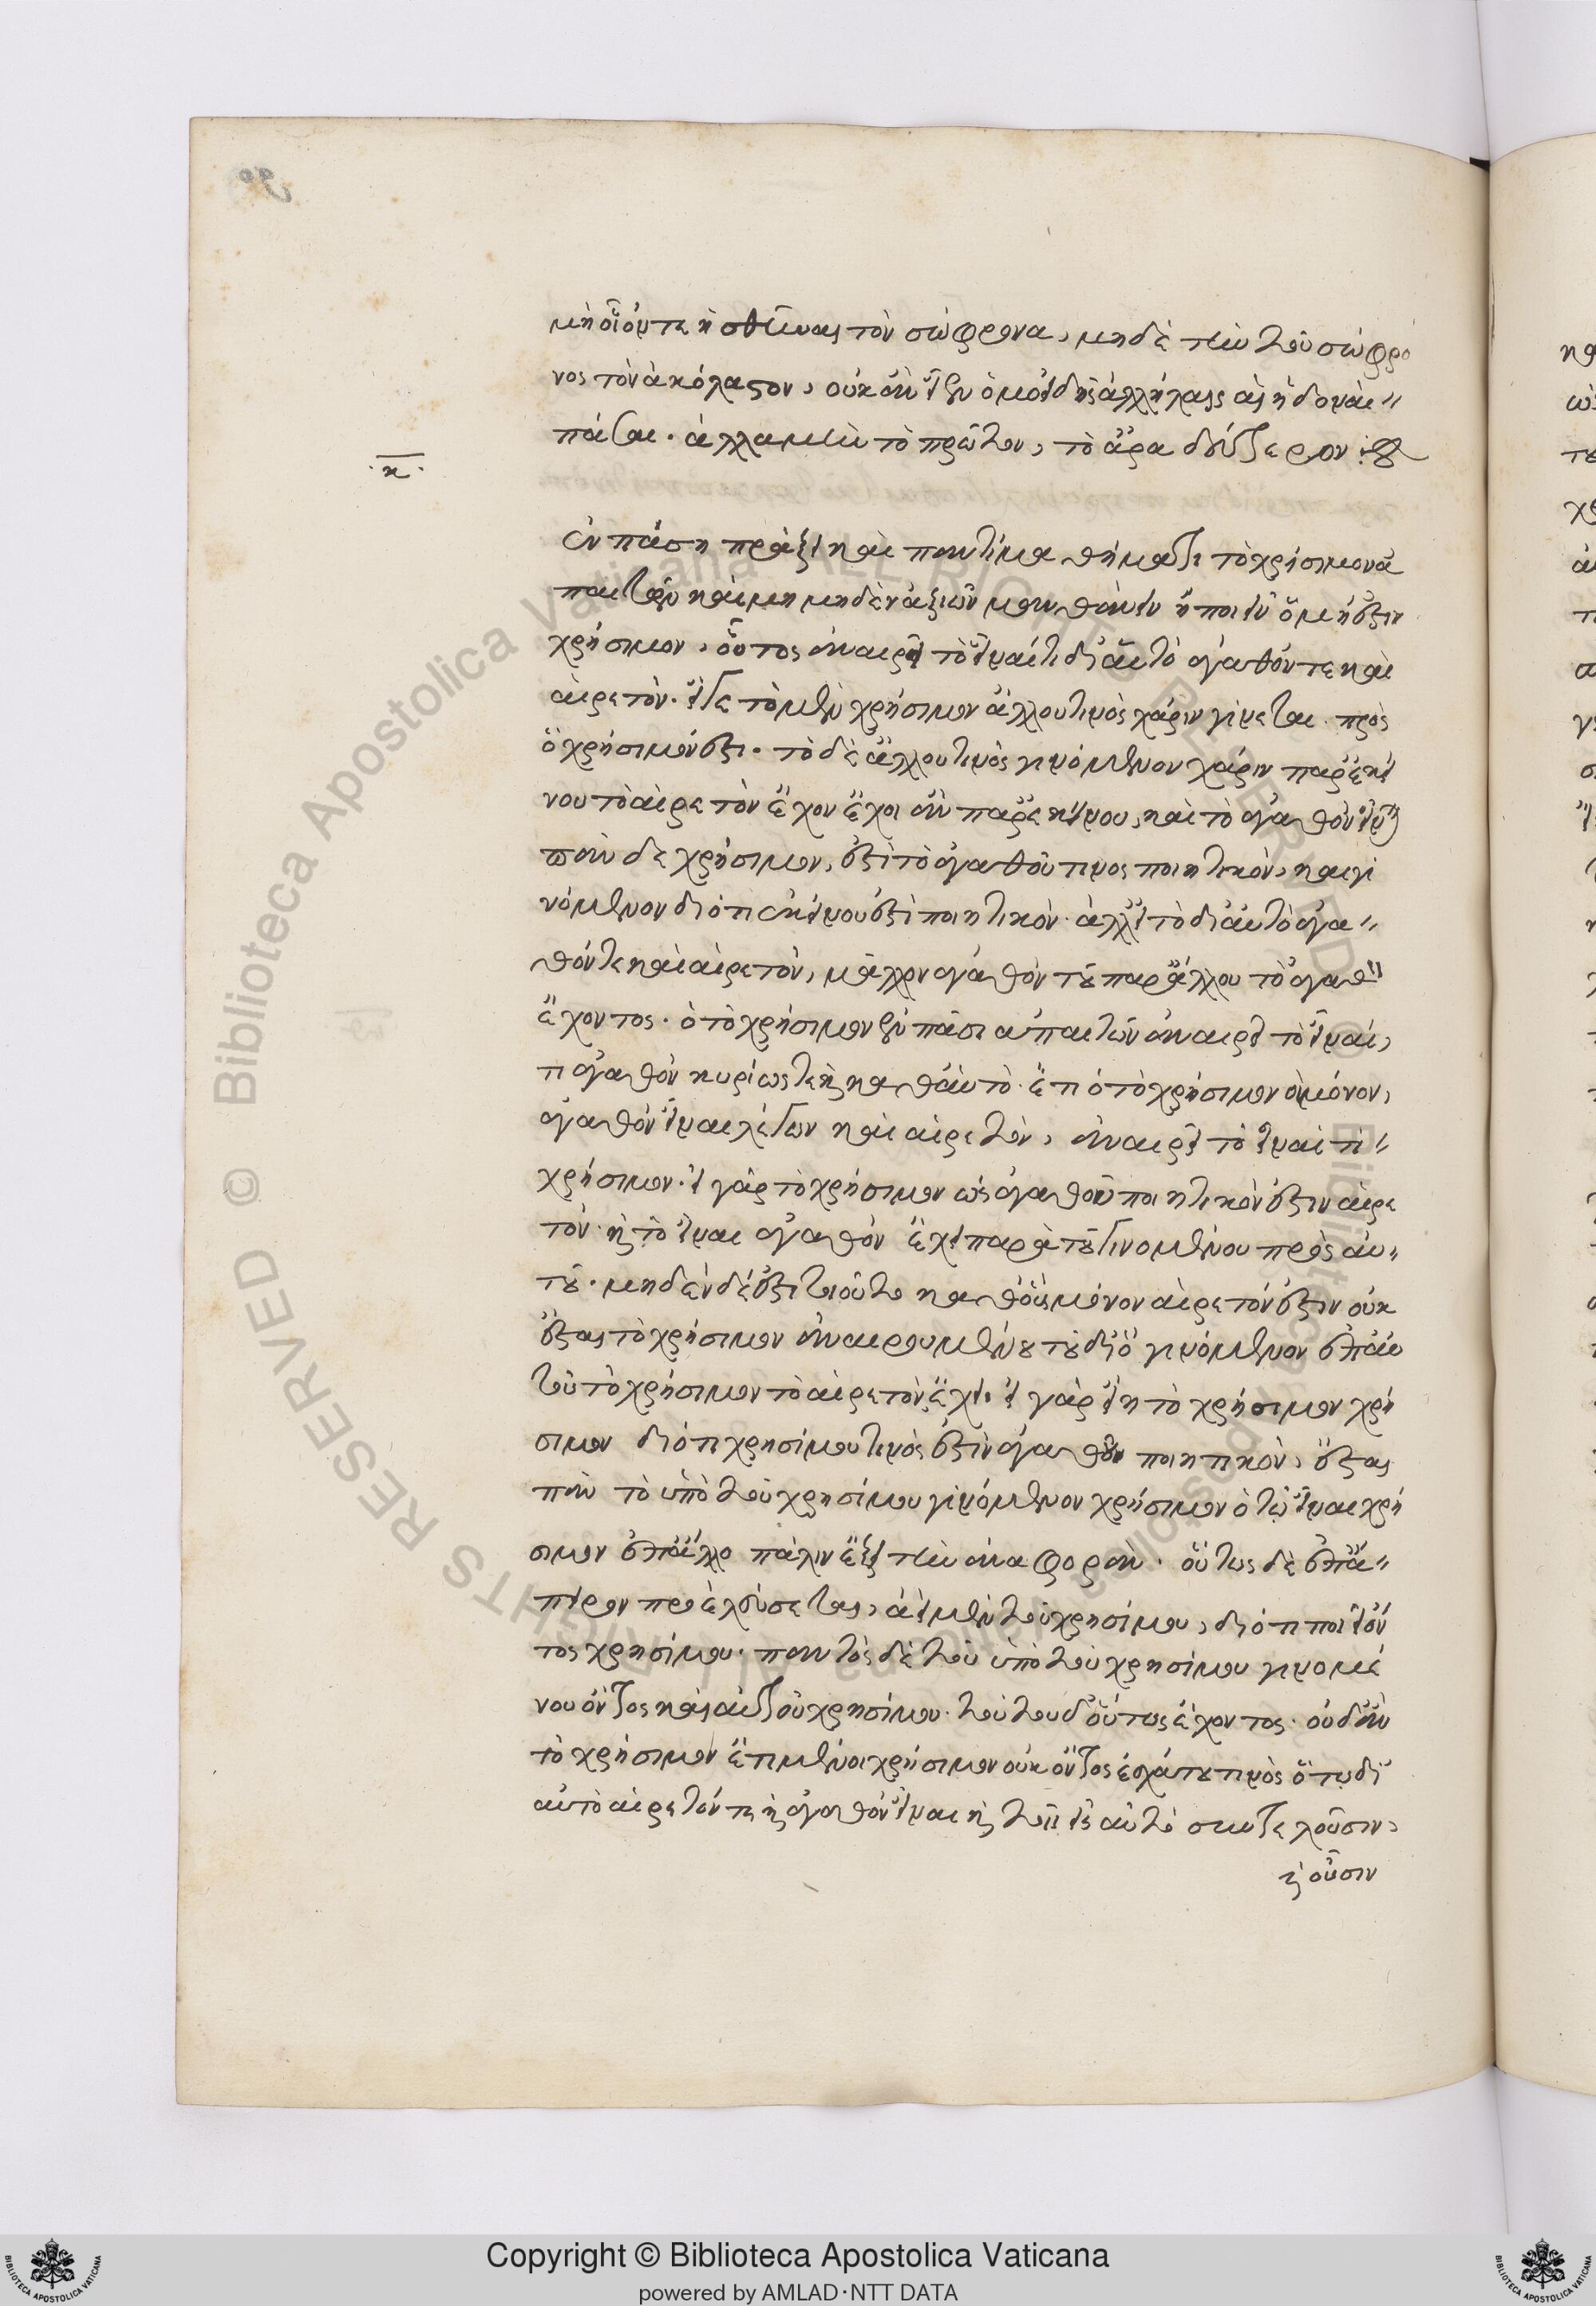 μὴ οἷόν τε ἡσθῆναι τὸν σώφρονα, μηδὲ τὴν τοῦ σώφρο
νος τὸν ἀκόλαστον, οὐκ ἂν εἶεν ὁμοειδεῖς ἀλλήλαις αἱ ἡδοναὶ
πᾶσαι. ἀλλὰ μὴν τὸ πρῶτον, τὸ ἄρα δεύτερον
.κ.
ἐν πάσῃ πράξει καὶ παντὶ μαθήματι τὸ χρήσιμον ἀ
παιτεῖν καὶ μηδὲν ἀξιοῦν μανθάνειν ἢ ποιεῖν ὃ μή ἐστιν
χρήσιμον, οὗτος ἀναιρεῖ τὸ εἶναί τι δι' αὑτὸ ἀγαθόν τε καὶ
αἱρετόν. εἴ γε τὸ μὲν χρήσιμον ἄλλου τινὸς χάριν γίνεται πρὸς
ὃ χρήσιμόν ἐστι. τὸ δὲ ἄλλου τινὸς γινόμενον χάριν παρ' ἐκεί
νου τὸ αἱρετὸν ἔχον ἔχοι ἂν παρ' ἐκείνου καὶ τὸ ἀγαθὸν εἶναι
πᾶν δὲ χρήσιμον, ἐστὶ τὸ ἀγαθοῦ τινος ποιητικὸν, καὶ γι
νόμενον διότι ἐκείνου ἐστὶ ποιητικόν. ἀλλ' εἰ τὸ δι' αὑτὸ ἀγα
θόν τε καὶ αἱρετὸν, μᾶλλον ἀγαθὸν τοῦ παρ' ἄλλου τὸ ἀγαθὸν
ἔχοντος. ὁ τὸ χρήσιμον ἐν πᾶσι ἀπαιτῶν ἀναιρεῖ τὸ εἶναί,
τι ἀγαθὸν κυρίως τε καὶ καθ' αὑτό. ἔτι ὁ τὸ χρήσιμον μόνον,
ἀγαθὸν εἶναι λέγων καὶ αἱρετὸν, ἀναιρεῖ τὸ εἶναί τι
χρήσιμον. εἰ γὰρ τὸ χρήσιμον ὡς ἀγαθοῦ ποιητικόν ἐστιν αἱρε
τὸν καὶ τὸ εἶναι ἀγαθὸν ἔχει παρὰ τοῦ γινομένου πρὸς αὐ
τοῦ. μηδὲν δέ ἐστι τοιοῦτο καθ' οὓς μόνον αἱρετόν ἐστιν οὐκ
ἔσται τὸ χρήσιμον ἀναιρουμένου τοῦ δι' ὃ γινόμενον ἐπ' αὐ
τοῦ τὸ χρήσιμον τὸ αἱρετὸν ἔχει. εἰ γὰρ εἴη τὸ χρήσιμον χρή
σιμον διότι χρησίμου τινὸς ἐστὶν ἀγαθοῦ ποιητικὸν, ἔσται
πᾶν τὸ ὑπὸ τοῦ χρησίμου γινόμενον χρήσιμον ὃ τῷ εἶναι χρή
σιμον ἐπ' ἄλλο πάλιν ἕξει τὴν ἀναφοράν. οὕτως δὲ ἐπ' ἄ
πειρον προελεύσεται, ἀεὶ μὲν τοῦ χρησίμου, διότι ποιεῖ ὄν
τος χρησίμου. παντὸς δὲ τοῦ ὑπὸ τοῦ χρησίμου γινομέ
νου ὄντος καὶ αὐτοῦ χρησίμου. τούτου δ' οὕτως ἔχοντος. οὐδ' ἂν
τὸ χρήσιμον ἔτι μένοι χρήσιμον οὐκ ὄντος ἐσχάτου τινὸς ὅ τῳ δι'
αὑτὸ αἱρετόν τε καὶ ἀγαθὸν εἶναι καὶ τοῖς εἰς αὐτὸ συντελοῦσιν,
καὶ οὖσιν